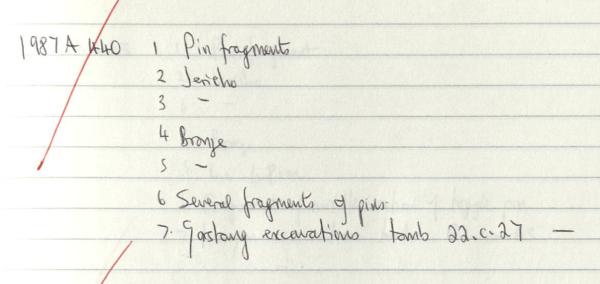 1987A 440 1 Pin fragments
2 Jericho
3 –
4 Bronze
5 –
6 Several fragments of pins.
7. Garstang excavations tomb 22.c.27 —